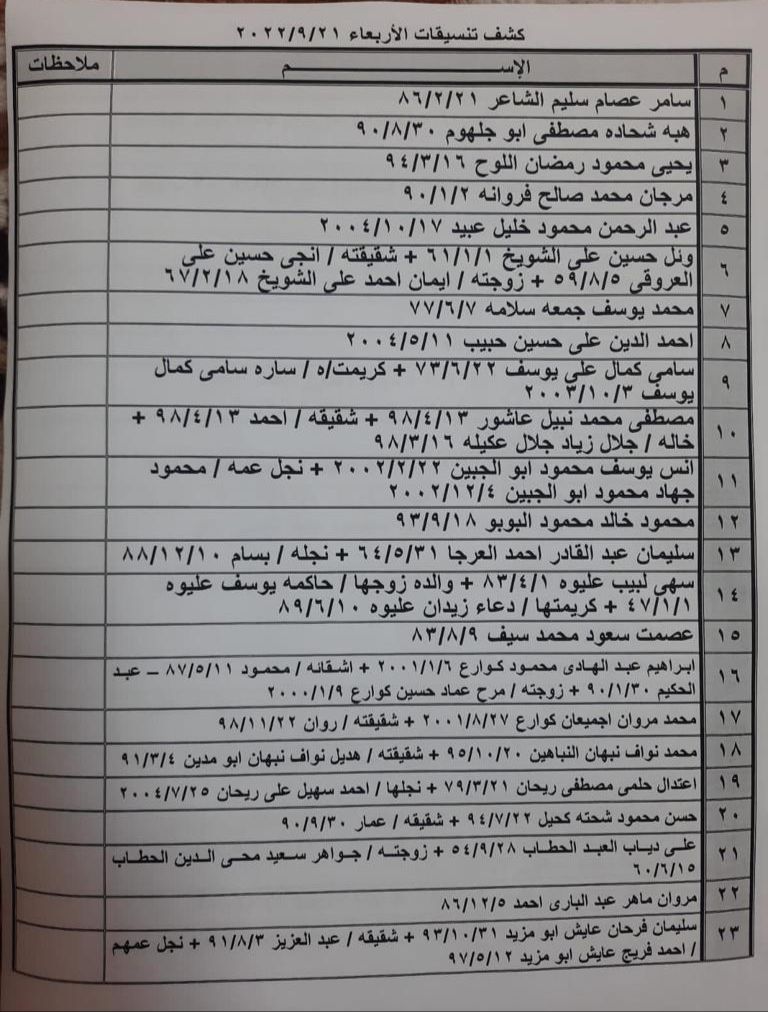 كشف تنسيقات الأربعاء ٢٠٢٢/٩/٢١
م الإســـــــــم ملاحظات
١ سامر عصام سليم الشاعر ٨٦/٢/٢١
٢ هبه شحاده مصطفى ابو جلهوم ٩٠/٨/٣٠
٣ يحيى محمود رمضان اللوح ٩٤/٣/١٦
٤ مرجان محمد صالح فروانه ٩٠/١/٢
٥ عبد الرحمن محمود خليل عبيد ٢٠٠٤/١٠/١٧
٦ ونل حسين على الشويخ ٦١/١/١ + شقيقته / انجى حسين على
العروقى ٥٩/٨/٥ + زوجته / ايمان احمد على الشويخ ٦٧/٢/١٨
٧ محمد يوسف جمعه سلامه ٧٧/٦/٧
٨ احمد الدين على حسين حبيب ٢٠٠٤/٥/١١
٩ سامى كمال على يوسف ٧٣/٦/٢٢ + كريمت/ه / ساره سامى كمال
يوسف ٢٠٠٣/١٠/٣
١٠ مصطفى محمد نبيل عاشور ٩٨/٤/١٣ + شقيقه / احمد ٩٨/٤/١٣ +
خاله / جلال زياد جلال عكيله ٩٨/٣/١٦
١١ انس يوسف محمود ابو الجبين ٢٠٠٢/٢/٢٢ + نجل عمه / محمود
جهاد محمود ابو الجبين ٢٠٠٢/١٢/٤
١٢ محمود خالد محمود البوبو ٩٣/٩/١٨
١٣ سليمان عبد القادر احمد العرجا ٦٤/٥/٣١ + نجله / بسام ٨٨/١٢/١٠
١٤ سهى لبيب عليوه ٨٣/٤/١ + والده زوجها / حاكمه يوسف عليوه
٤٧/١/١ + كريمتها / دعاء زيدان عليوه ٨٩/٦/١٠
١٥ عصمت سعود محمد سيف ٨٣/٨/٩
١٦ ابراهيم عبد الهادى محمود كوارع ٢٠٠١/١/٦ + اشقانه / محمود ٨٧/٥/١١ – عبد
الحكيم ٩٠/١/٣٠ + زوجته / مرح عماد حسين كوارع ٢٠٠٠/١/٩
١٧ محمد مروان اجميعان كوارع ٢٠٠١/٨/٢٧ + شقيقته / روان ٩٨/١١/٢٢
١٨ محمد نواف نبهان النباهين ٩٥/١٠/٢٠ + شقيقته / هديل نواف نبهان ابو مدين ٩١/٣/٤
١٩ اعتدال حلمى مصطفى ريحان ٧٩/٣/٢١ + نجلها / احمد سهيل على ريحان ٢٠٠٤/٧/٢٥
٢٠ حسن محمود شحته كحيل ٩٤/٧/٢٢ + شقيقه / عمار ٩٠/٩/٣٠
٢١ على دياب العبد الحطاب ٥٤/٩/٢٨ + زوجته / جواهر سعيد محى الدين الحطاب
٦٠/٦/١٥
٢٢ مروان ماهر عبد البارى احمد ٨٦/١٢/٥
٢٣ سليمان فرحان عايش ابو مزيد ٩٣/١٠/٣١ + شقيقه / عبد العزيز ٩١/٨/٣ + نجل عمهم
/ احمد فريج عايش ابو مزيد ٩٧/٥/١٢